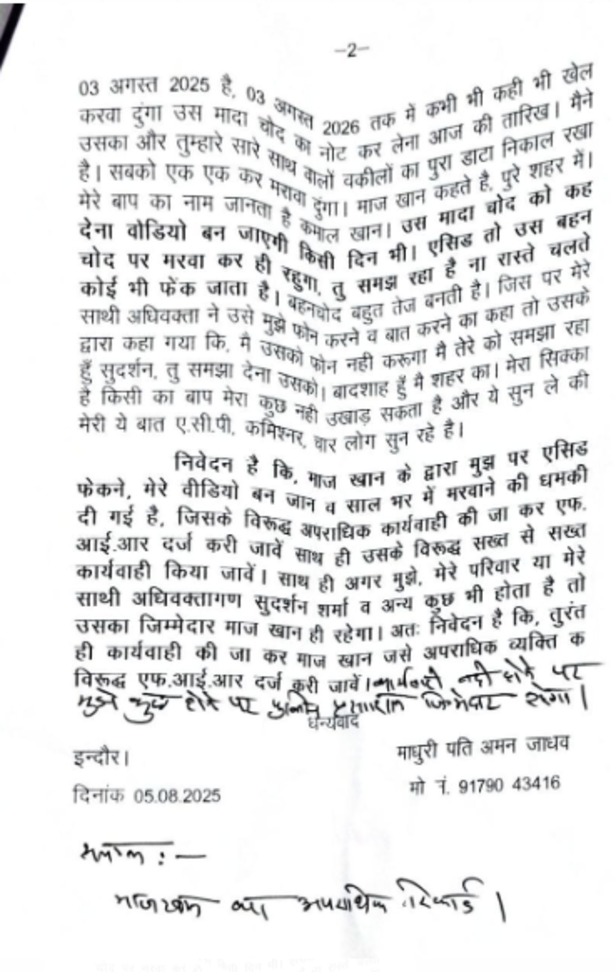 –2–
03 अगस्त 2025 है, 03 अगस्त 2026 तक में कभी भी कही भी खेल
करवा दुंगा उस मादा चोद का नोट कर लेना आज की तारिख। मैने
उसका और तुम्हारे सारे साथ वालों वकीलों का पुरा डाटा निकाल रखा
है। सबको एक एक कर मरावा दुंगा। माज खान कहते है, पुरे शहर में।
मेरे बाप का नाम जानता है कमाल खान। उस मादा चोद को कह
देना वोडियो बन जाएगी किसी दिन भी। एसिड तो उस बहन
चोद पर मरवा कर ही रहुगा, तु समझ रहा है ना रास्ते चलते
कोई भी फेंक जाता है। बहनचोद बहुत तेज बनती है। जिस पर मेरे
साथी अधिवक्ता ने उसे मुझे फोन करने व बात करने का कहा तो उसके
द्वारा कहा गया कि, मै उसको फोन नही करूगा मै तेरे को समझा रहा
हुँ सुदर्शन, तु समझा देना उसको। बादशाह हुँ मै शहर का। मेरा सिक्का
है किसी का बाप मेरा कुछ नही उखाड़ सकता है और ये सुन ले की
मेरी ये बात ए.सी.पी, कमिश्नर, चार लोग सुन रहे है।
निवेदन है कि, माज खान के द्वारा मुझ पर एसिड
फेकने, मेरे वीडियो बन जान व साल भर में मरवाने की धमकी
दी गई है, जिसके विरूद्ध अपराधिक कार्यवाही की जा कर एफ.
आई.आर दर्ज करी जावें साथ ही उसके विरूद्ध सख्त से सख्त
कार्यवाही किया जावें। साथ ही अगर मुझे, मेरे परिवार या मेरे
साथी अधिवक्तागण सुदर्शन शर्मा व अन्य कुछ भी होता है तो
उसका जिम्मेदार माज खान ही रहेगा। अतः निवेदन है कि, तुरंत
ही कार्यवाही की जा कर माज खान जसे अपराधिक व्यक्ति क
विरूद्ध एफ.आई.आर दर्ज करी जावें। कार्यवाही नही होने पर
मुझे कुछ होने पर पुलिस प्रशासन जिम्मेदार रहेगा।
धन्यवाद
इन्दौर।
माधुरी पति अमन जाधव
दिनांक 05.08.2025
मो नं. 91790 43416
संलग्न : –
माज खान का अपराधिक रिकार्ड।